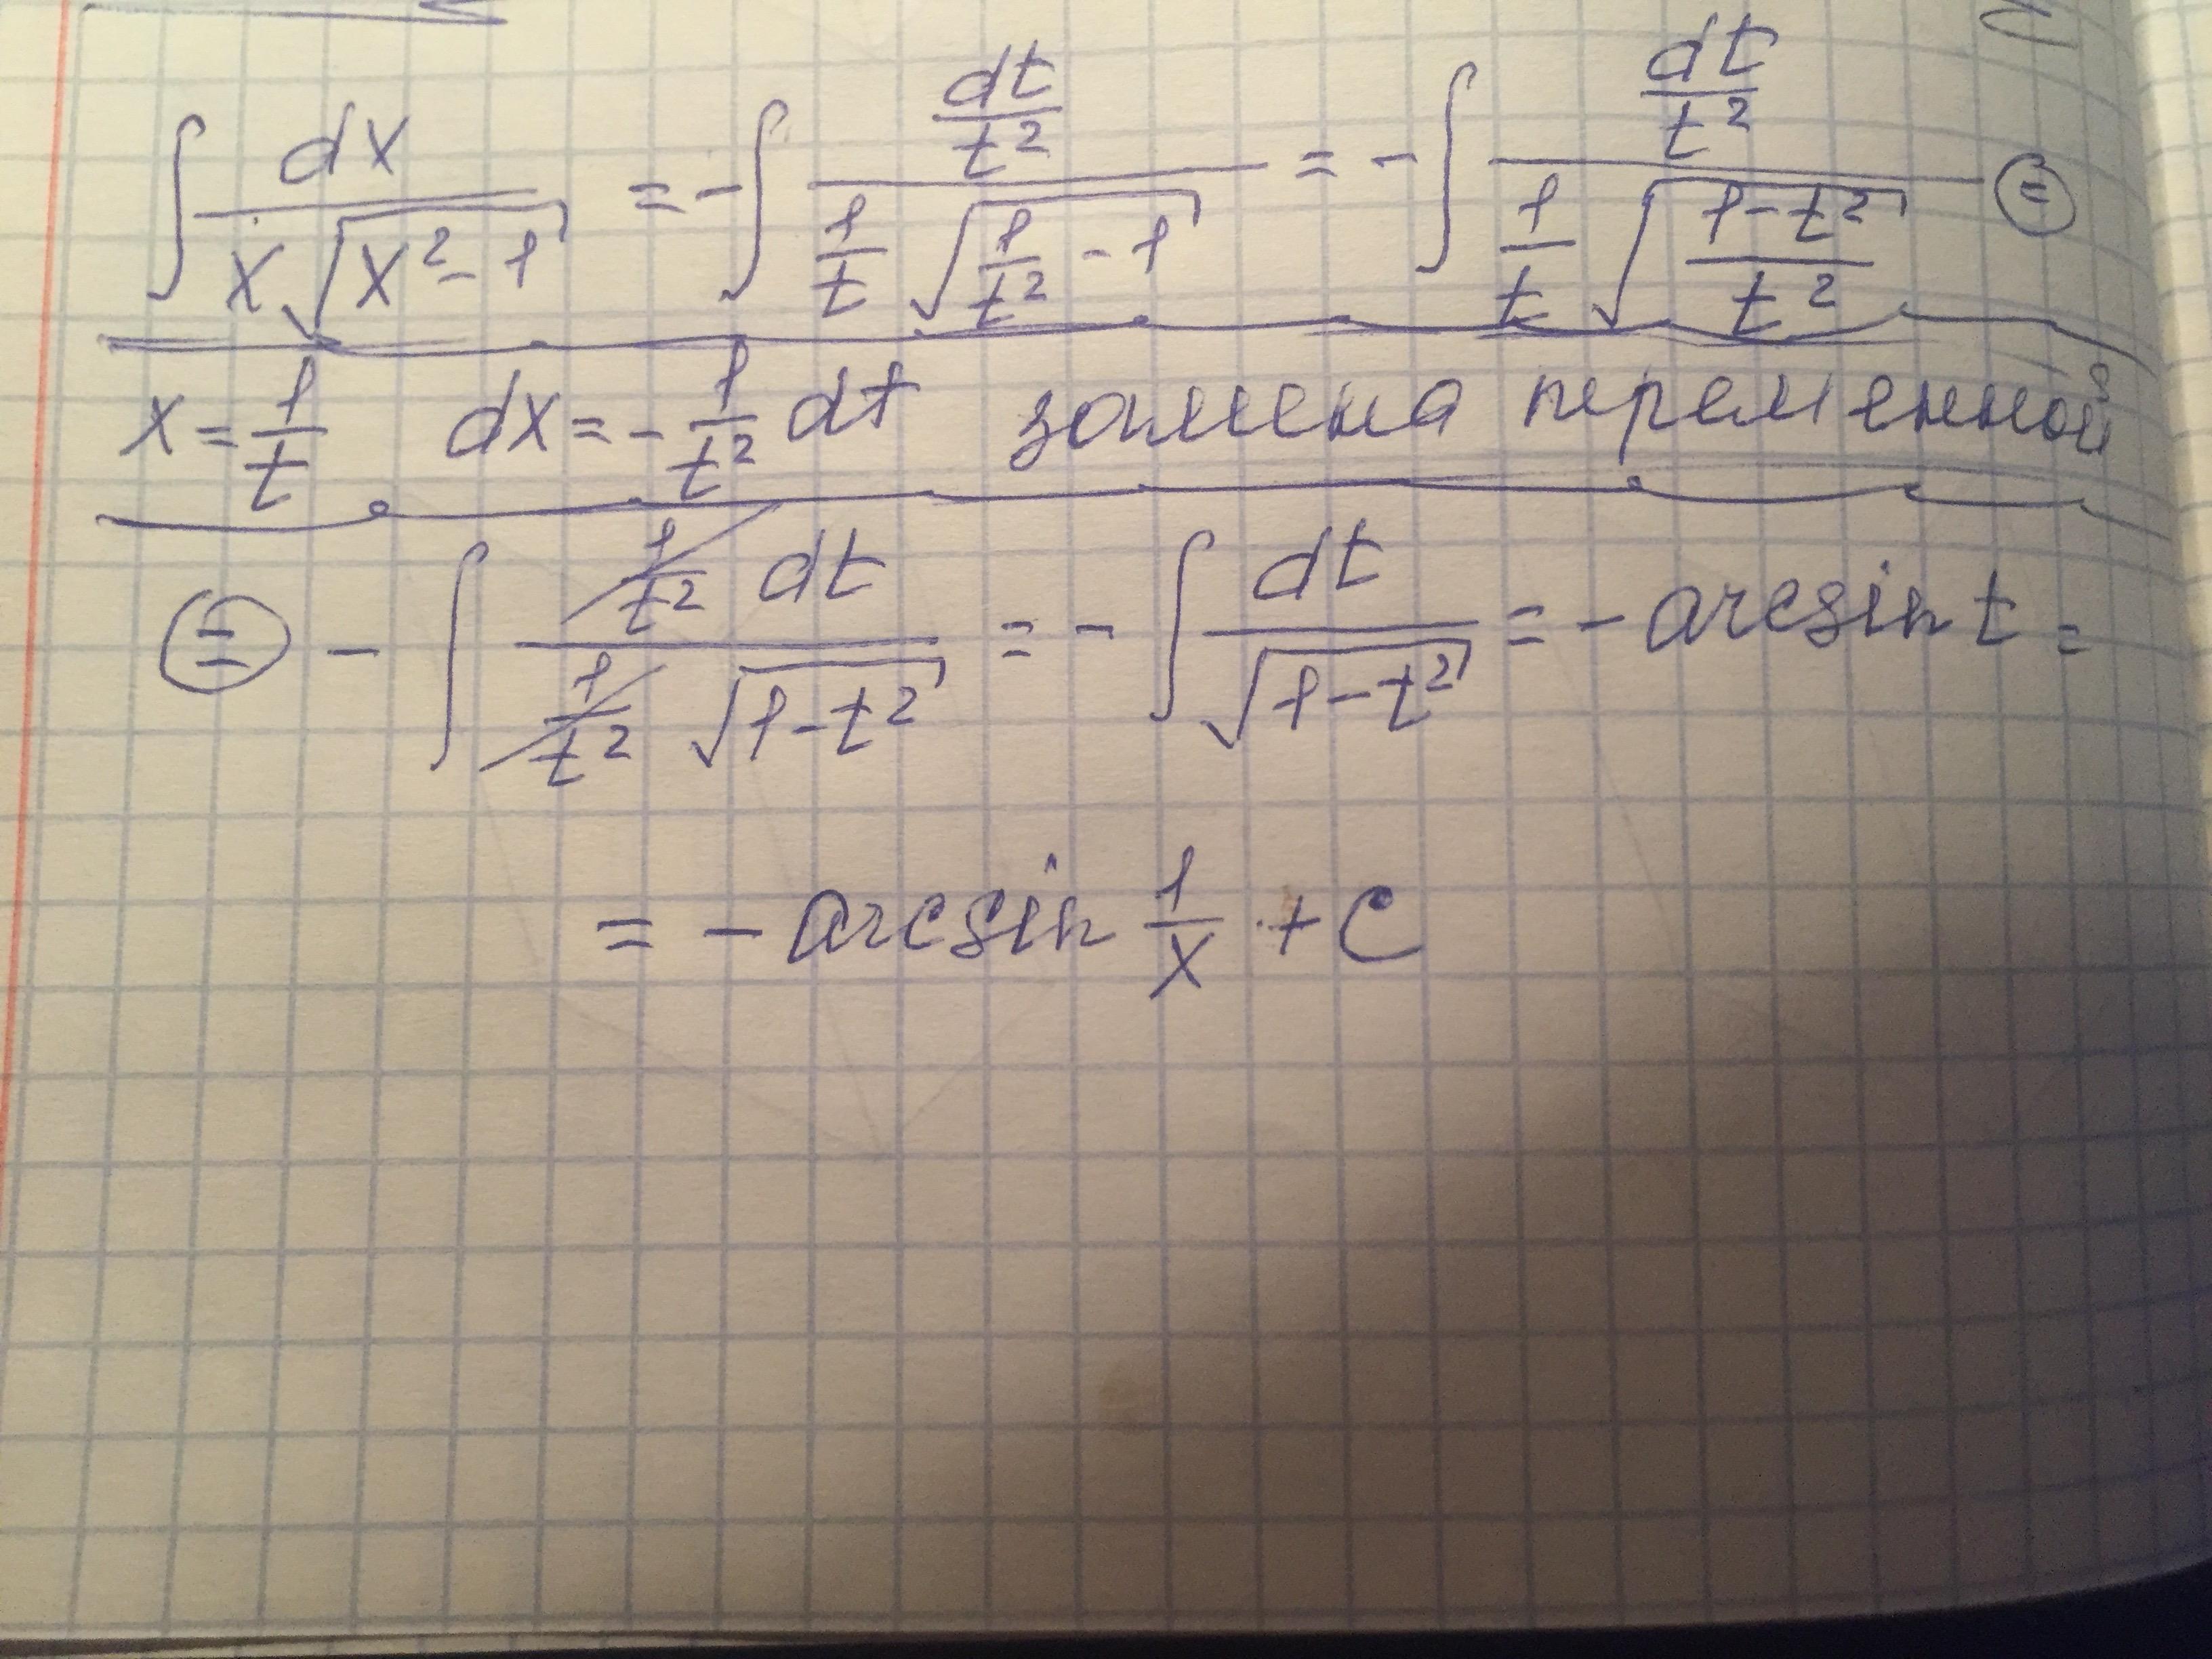 ∫ dx / (x√(x²-1)) = -∫ (dt/t²) / ((1/t)√(1/t² - 1)) = -∫ (dt/t²) / ((1/t)√((1-t²)/t²)) ⊜
x = 1/t dx = -1/t² dt замена переменной
⊜ -∫ (1/t² dt) / ((1/t²)√(1-t²)) = -∫ dt / √(1-t²) = -arcsin t =
= -arcsin 1/x + C